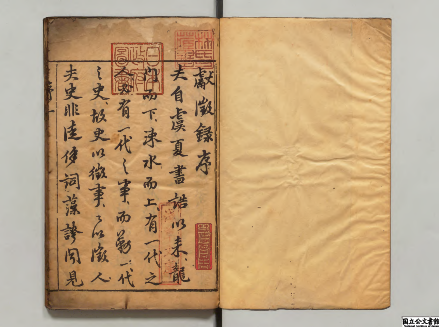 獻徵錄序
夫自虞夏書誥以來龍
門而下涑水而上有一代之
人必有一代之事而勒一代
之史故史以徵事事以徵人
夫史非徒侈詞藻誇聞見
國立公文書館